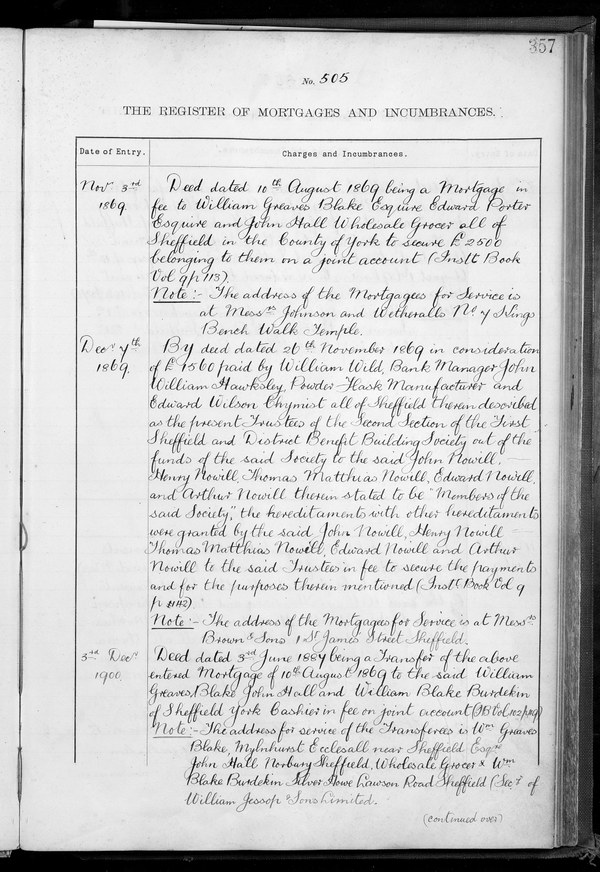 357
No. 505
THE REGISTER OF MORTGAGES AND INCUMBRANCES.
Date of Entry.
Charges and Incumbrances.
Novr 3rd
1869
Deed dated 10th August 1869 being a Mortgage in
fee to William Greaves Blake Esquire Edward Porter
Esquire and John Hall Wholesale Grocer all of
Sheffield in the County of York to secure £2500
belonging to them on a joint account (Instt Book
Vol 9 p 113).
Note:- The address of the Mortgagees for Service is
at Messrs Johnson and Wetheralls No 7 Kings
Bench Walk Temple.
Decr 7th
1869.
By deed dated 26th November 1869 in consideration
of £1560 paid by William Wild, Bank Manager John
William Hawksley, Powder Flask Manufacturer and
Edward Wilson Chymist all of Sheffield therein described
as the present Trustees of the Second Section of the First
Sheffield and District Benefit Building Society out of the
funds of the said Society to the said John Nowill,
Henry Nowill, Thomas Matthias Nowill, Edward Nowill,
and Arthur Nowill therein stated to be "Members of the
said Society", the hereditaments with other hereditaments
were granted by the said John Nowill, Henry Nowill
Thomas Matthias Nowill, Edward Nowill and Arthur
Nowill to the said Trustees in fee to secure the payments
and for the purposes therein mentioned (Instt Book Vol 9
p 1142)
Note:- The address of the Mortgagees for Service is at Messrs
Brown & Sons 1 St James Street Sheffield.
3rd Decr
1900.
Deed dated 3rd June 1887 being a Transfer of the above
entered Mortgage of 10th August 1869 to the said William
Greaves Blake John Hall and William Blake Burdekin
of Sheffield York Cashier in fee on joint account (IB Vol 102
Note:- The address for service of the Transferees is Wm Greaves
Blake, Mylnhurst Ecclesall near Sheffield Esqre
John Hall Norbury Sheffield, Wholesale Grocer & Wm
Blake Burdekin Silver Howe Lawson Road Sheffield (Secy of
William Jessop & Sons Limited.
(continued over)